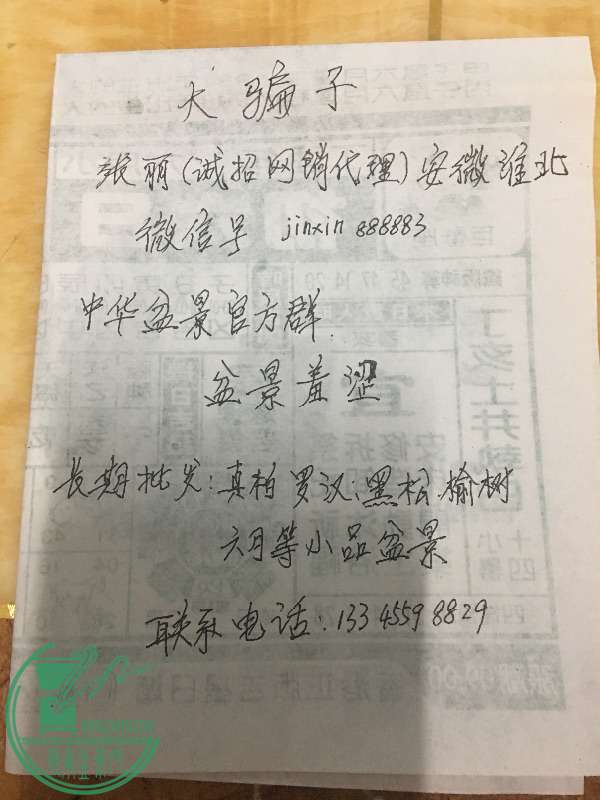 大骗子
张丽(诚招网销代理)安徽淮北
微信号 jinxin 888883
中华盆景官方群
盆景羞涩
长期批发:真柏 罗汉:黑松 榆树
六月等小品盆景
联系电话:133 4559 8829